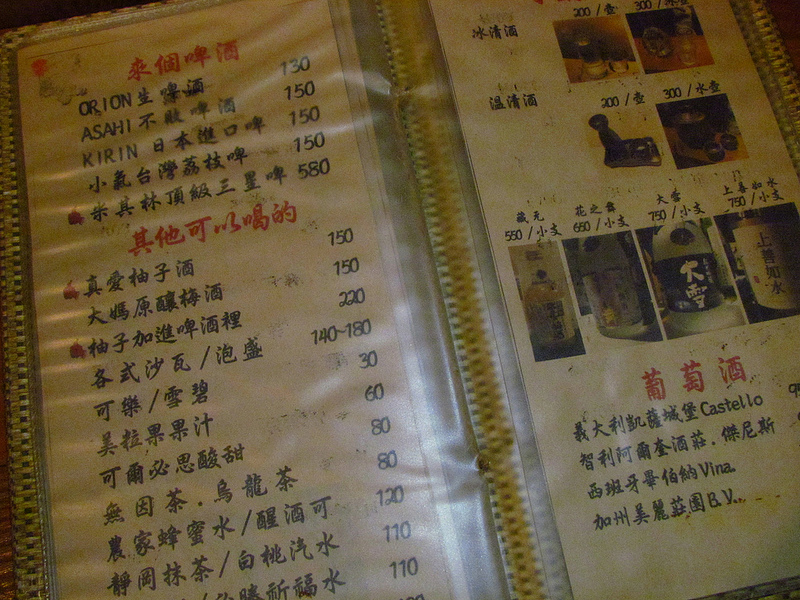 來個啤酒
ORION生啤酒 130
ASAHI不敗啤酒 150
KIRIN 日本進口啤 150
小氣台灣荔枝啤 150
米其林頂級三星啤 580
其他可以喝的
真愛柚子酒 150
大媽原釀梅酒 150
柚子加進啤酒裡 220
各式沙瓦/泡盛 140~180
可樂/雪碧 30
美粒果果汁 60
可爾必思酸甜 80
無因茶.烏龍茶 80
農家蜂蜜水/醒酒可 120
靜岡抹茶/白桃汽水 110
勝祈福水 110
冰清酒 200/壺 300/冰壺
溫清酒 200/壺 300/水壺
藏元 花之舞 大雪 上善如水
550/小支 650/小支 750/小支 750/小支
大雪
上善如水
葡萄酒
義大利凱薩城堡Castello
智利阿爾奎酒莊.傑尼斯
西班牙畢伯納Vina.
加州美麗莊園B.V..